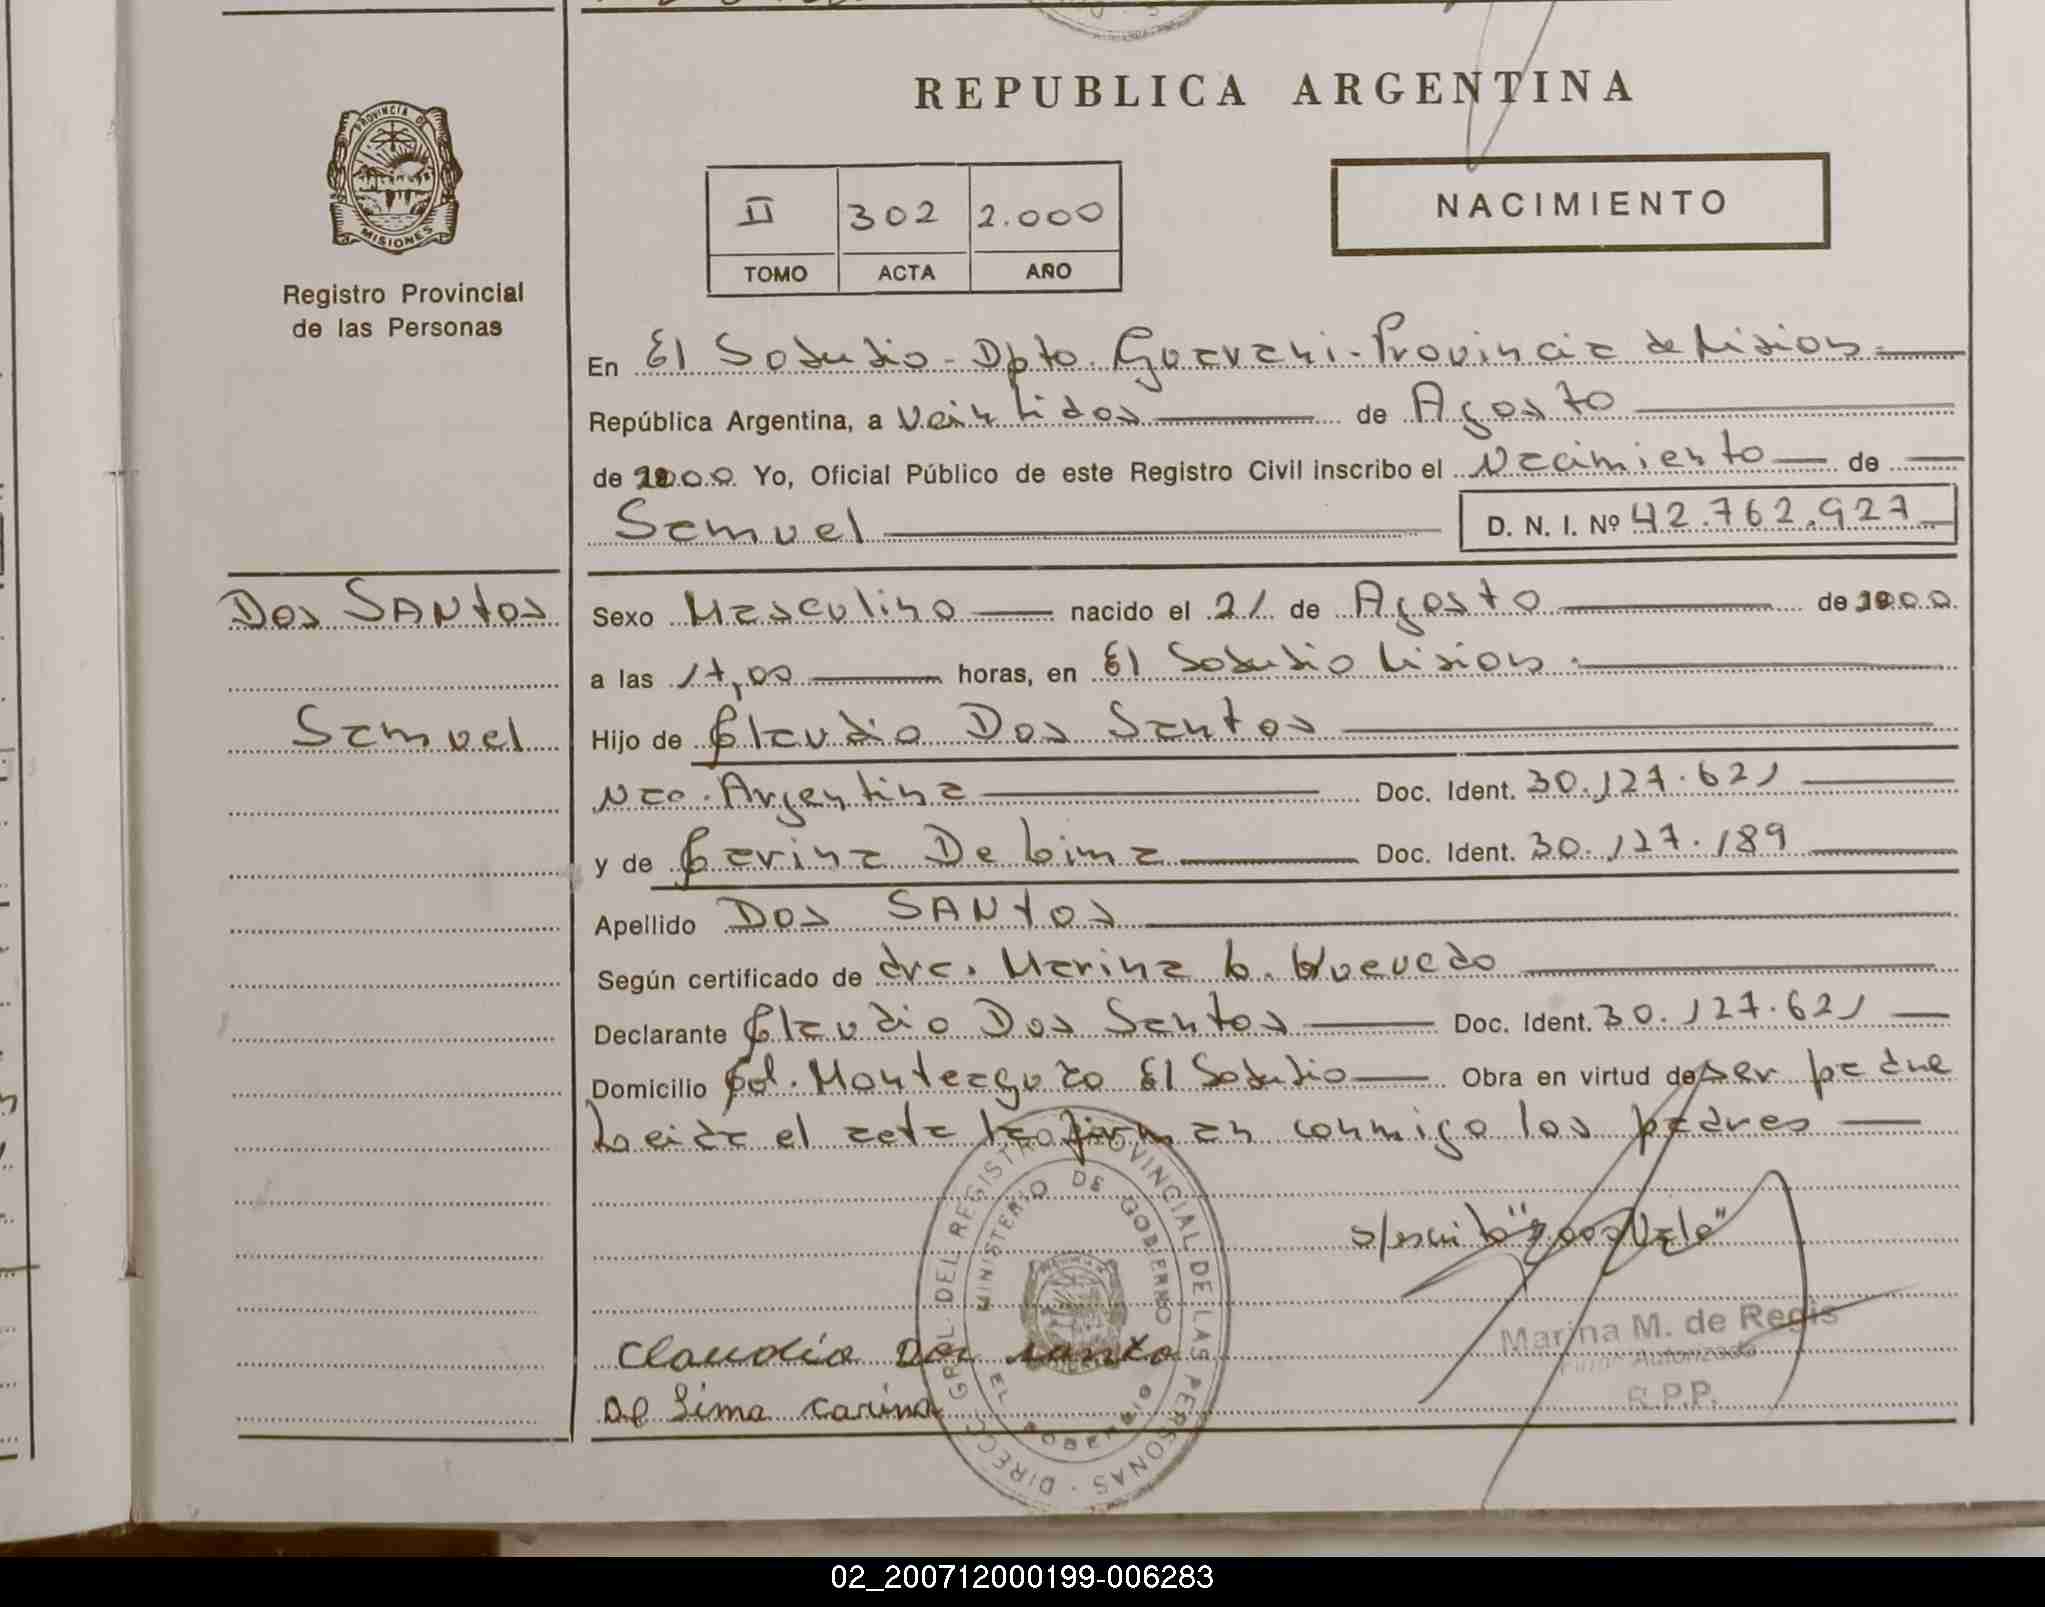 REPUBLICA ARGENTINA
PROVINCIA DE
MISIONES
Registro Provincial
de las Personas
II 302 2.000
TOMO ACTA AÑO
NACIMIENTO
En El Soberbio - Dpto. Guarani - Provincia de Misiones
República Argentina, a Veintidos de Agosto
de 2000 Yo, Oficial Público de este Registro Civil inscribo el Nacimiento de
Samuel D. N. I. Nº 42.762.927
DOS SANTOS
Samuel
Sexo Masculino nacido el 21 de Agosto de 2000
a las 17,00 horas, en El Soberbio Misiones
Hijo de Claudio Dos Santos
Nac. Argentina Doc. Ident. 30.127.621
y de Carina De Lima Doc. Ident. 30.127.189
Apellido DOS SANTOS
Según certificado de dra. Marina L. Quevedo
Declarante Claudio Dos Santos Doc. Ident. 30.127.621
Domicilio Col. Monteagudo El Soberbio Obra en virtud de ser padre
Leida el acta la firman conmigo los padres
s/escrito "2.000 Vale"
Claudio Dos santo
De Lima Carina
DIRECC. GRAL. DEL REGISTRO PROVINCIAL DE LAS PERSONAS
MINISTERIO DE GOBIERNO
EL SOBERBIO
Marina M. de Regis
Firma Autorizada
R.P.P.
02_200712000199-006283